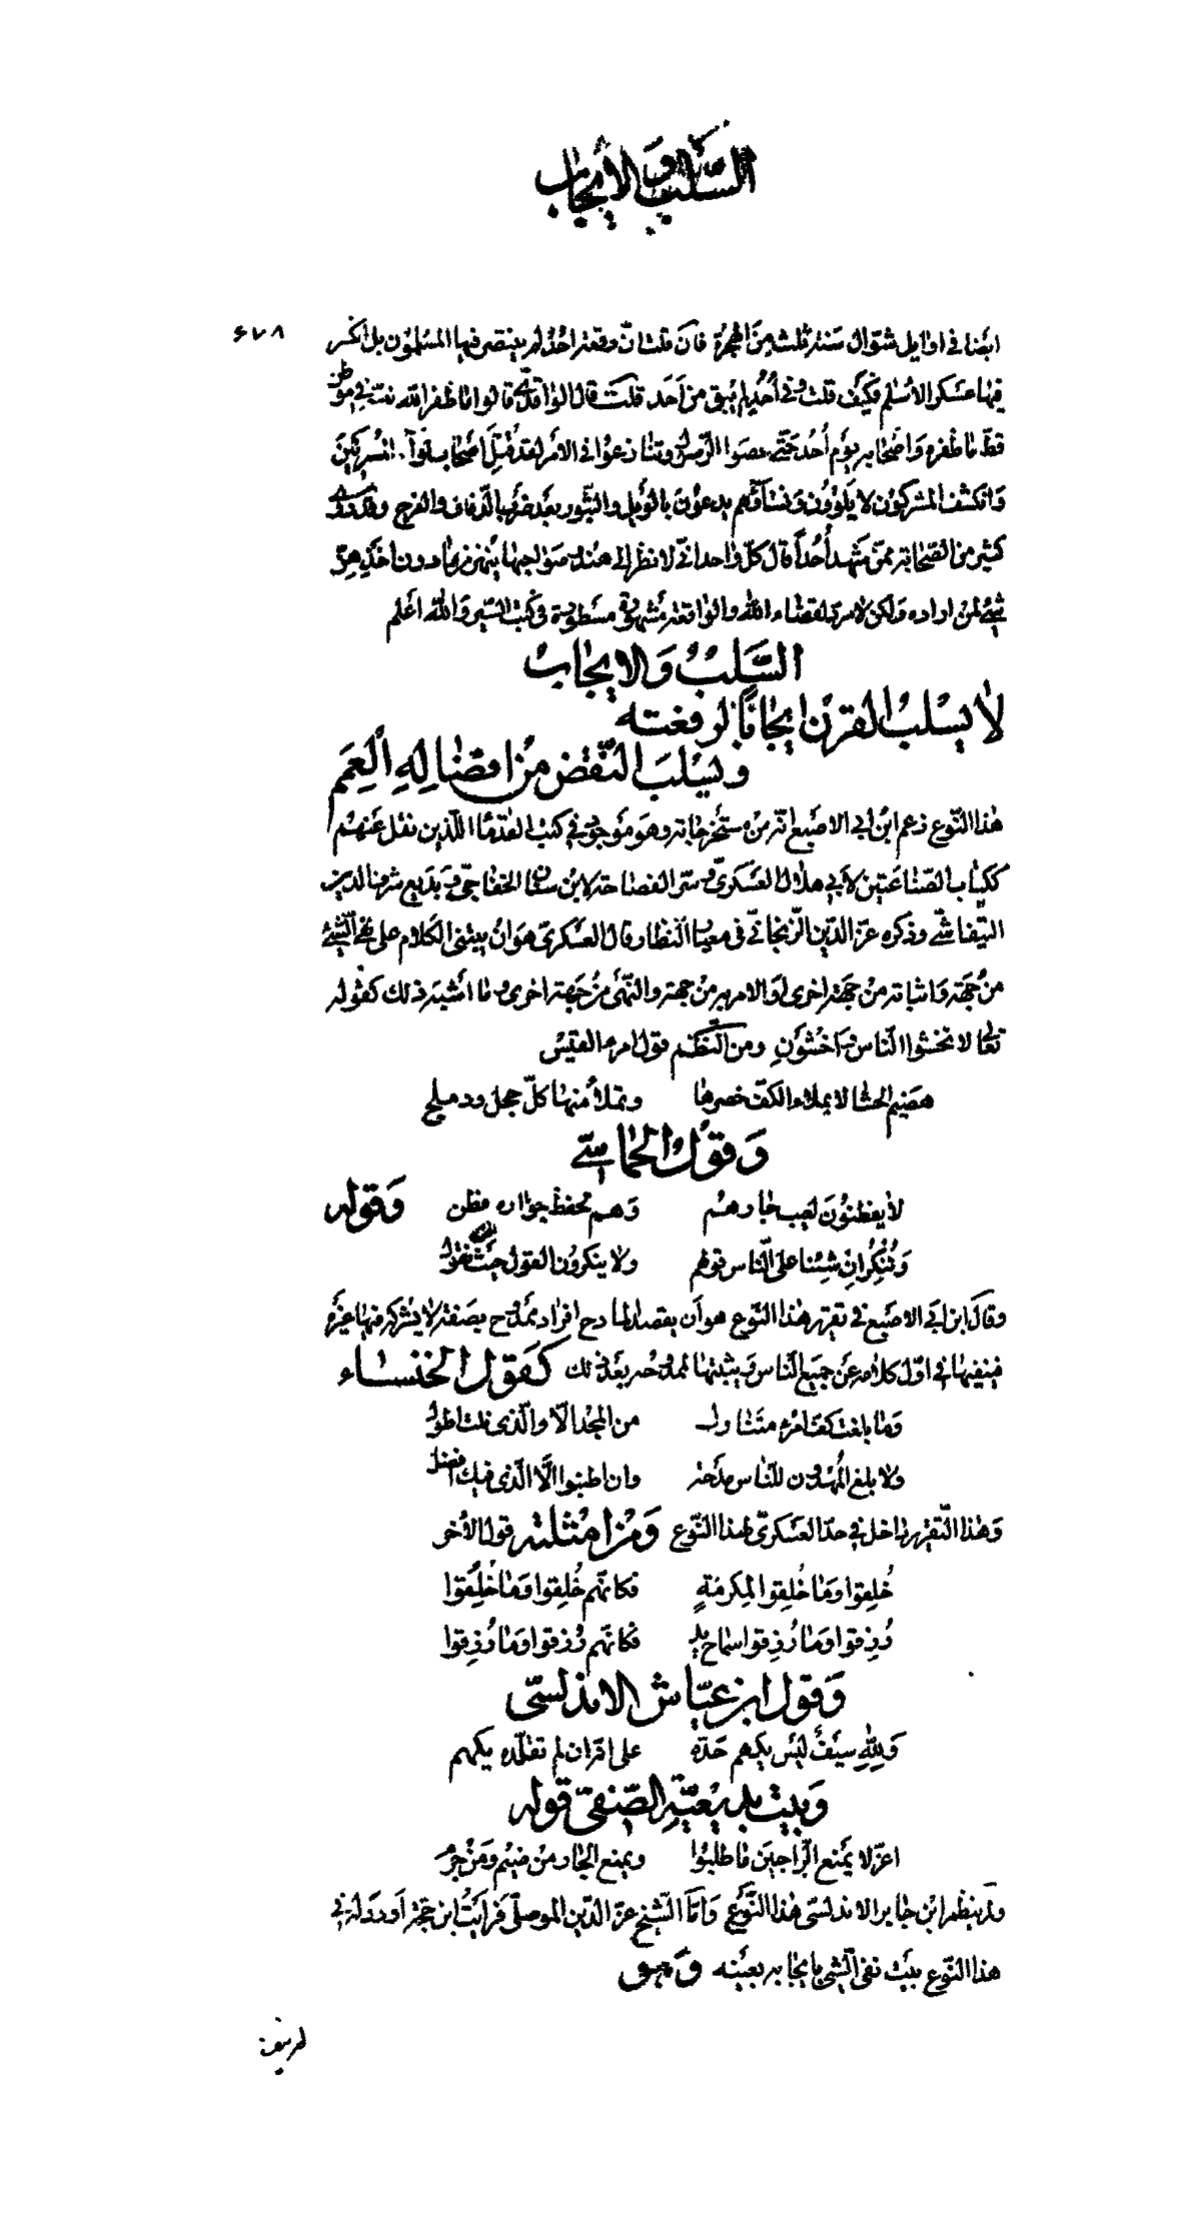 السلب والايجاب
ايضا في اوايل شوال سنة ثلث من الهجرة فان قلت ان وقعة احد لم ينتصر فيها المسلمون بل انكسر ۶۷۸
فيها عسكر الاسلام فكيف قلت وفي أُحُد لم يبق من أحد قلت قالوا ما ظفر الله نبيه في موطن
قط ما ظفره واصحابه يوم أُحد حتى عصوا الرسول وتنازعوا في الامر لقد قتل اصحاب لواء المشركين
وانكشف المشركون لا يلوون ونساؤهم يدعون بالويل والثبور بعد ضربها بالدفاف والفرح وقد روى
كثير من الصحابة ممن شهد أُحداً قال كل واحد اني لانظر الى هند وصواحبها ينهزمن ما دون اخذهن
شئ لمن اراده ولكن لا مرد لقضاء الله والواقعة مشهورة مسطورة في كتب السير والله اعلم
السلب والايجاب
لا يسلب القرن ايجابا لرفعته
ويسلب النقض من افضاله العمم
هذا النوع زعم ابن ابي الاصبع انه من مستخرجاته وهو موجود في كتب القدماء الذين نقل عنهم
ككتاب الصناعتين لابي هلال العسكري وسر الفصاحة لابن سنان الخفاجي وبديع شرف الدين
التيفاشي وذكره عز الدين الزنجاني في معيار النظار قال العسكري هو ان يبتنى الكلام على نفي الشئ
من جهة واثباته من جهة اخرى او الامر به من جهة والنهي من جهة اخرى وما اشبه ذلك كقوله
تعالى لا تخشوا الناس واخشون ومن النظم قول امرء القيس
هضيم الحشا لا يملاء الكف خصرها ويملأ منها كل حجل ودملج
وقول الحماسي
لا يفطنون لعيب جارهم وهم لحفظ جواره فطن وقوله
وننكر ان شئنا على الناس قولهم ولا ينكرون القول حين نقول
وقال ابن ابي الاصبع في تقرير هذا النوع هو ان يقصد المادح افراد ممدوح بصفة لا يشركه فيها غيره
فينفيها في اول كلامه عن جميع الناس ويثبتها لممدوحه بعد ذلك كقول الخنساء
وما بلغت كف امرء متناول من المجد الا والذي نلت اطول
ولا بلغ المهدون للناس مدحة وان اطنبوا الا الذي فيك افضل
وهذا التقرير داخل في حد العسكري لهذا النوع ومن امثلته قول الآخر
خُلِقوا وما خُلِقوا لمكرمةٍ فكانهم خُلِقوا وما خُلِقوا
رُزِقوا وما رُزِقوا سماح يدٍ فكانهم رُزقوا وما رُزِقوا
وقول ابن عياش الاندلسي
ولِلّهِ سيفٌ ليس يكهم حده على اقران لم تقلده يكهم
وبيت بديعية الصفي قوله
اعز لا يمنع الراجين ما طلبوا ويمنع الجار من ضيم ومن حرم
ولم ينظم ابن جابر الاندلسي هذا النوع واما الشيخ عز الدين الموصلي فرأيت ابن حجة اورد له في
هذا النوع بيت نفي الشئ بايجابه بعينه وهو
لم ينف